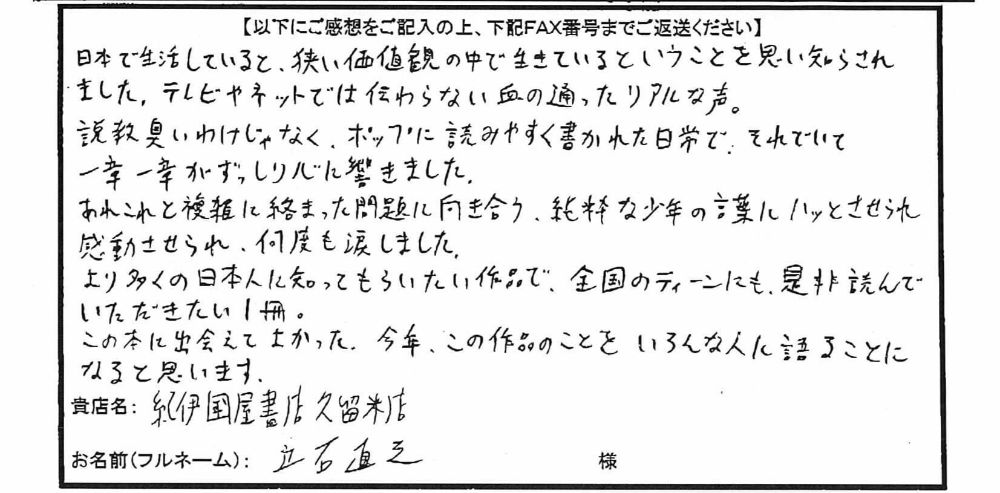 【以下にご感想をご記入の上、下記FAX番号までご返送ください】
日本で生活していると、狭い価値観の中で生きているということを思い知らされ
ました。テレビやネットでは伝わらない血の通ったリアルな声。
説教臭いわけじゃなく、ポップに読みやすく書かれた日常で、それでいて
一章一章がずっしり心に響きました。
あれこれと複雑に絡まった問題に向き合う、純粋な少年の言葉にハッとさせられ
感動させられ、何度も涙しました。
より多くの日本人に知ってもらいたい作品で、全国のティーンにも、是非読んで
いただきたい1冊。
この本に出会えてよかった。今年、この作品のことをいろんな人に語ることに
なると思います。
貴店名：紀伊國屋書店久留米店
お名前（フルネーム）：立石直之 様